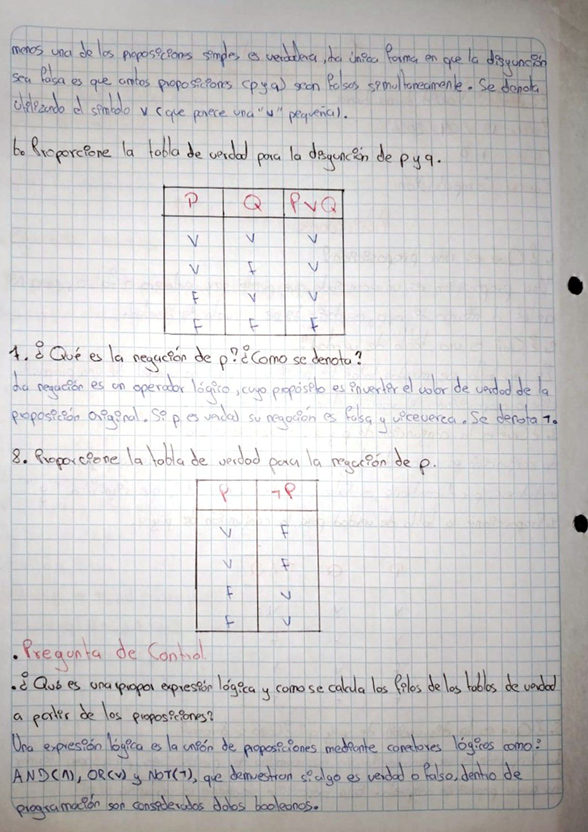 menos una de las proposiciones simples es verdadera, la única forma en que la disyunción
sea falsa es que ambas proposiciones (p y q) sean falsas simultaneamente. Se denota
utilizando el símbolo v (que parece una "v" pequeña).
6. Proporcione la tabla de verdad para la disyunción de p y q.
P Q P∨Q
V V V
V F V
F V V
F F F
7. ¿Qué es la negación de p? ¿Como se denota?
La negación es un operador lógico, cuyo propósito es invertir el valor de verdad de la
proposición original. Si p es verdad su negación es falsa y viceverca. Se denota ¬.
8. Proporcione la tabla de verdad para la negación de p.
P ¬P
V F
V F
F V
F V
. Pregunta de Control
. ¿Qué es una expresión lógica y como se calcula las filas de las tablas de verdad
a partir de las proposiciones?
Una expresión lógica es la unión de proposiciones mediante conectores lógicos como:
AND(∧), OR(∨) y NOT(¬), que demuestran si algo es verdad o falso, dentro de
programación son considerados datos booleanos.